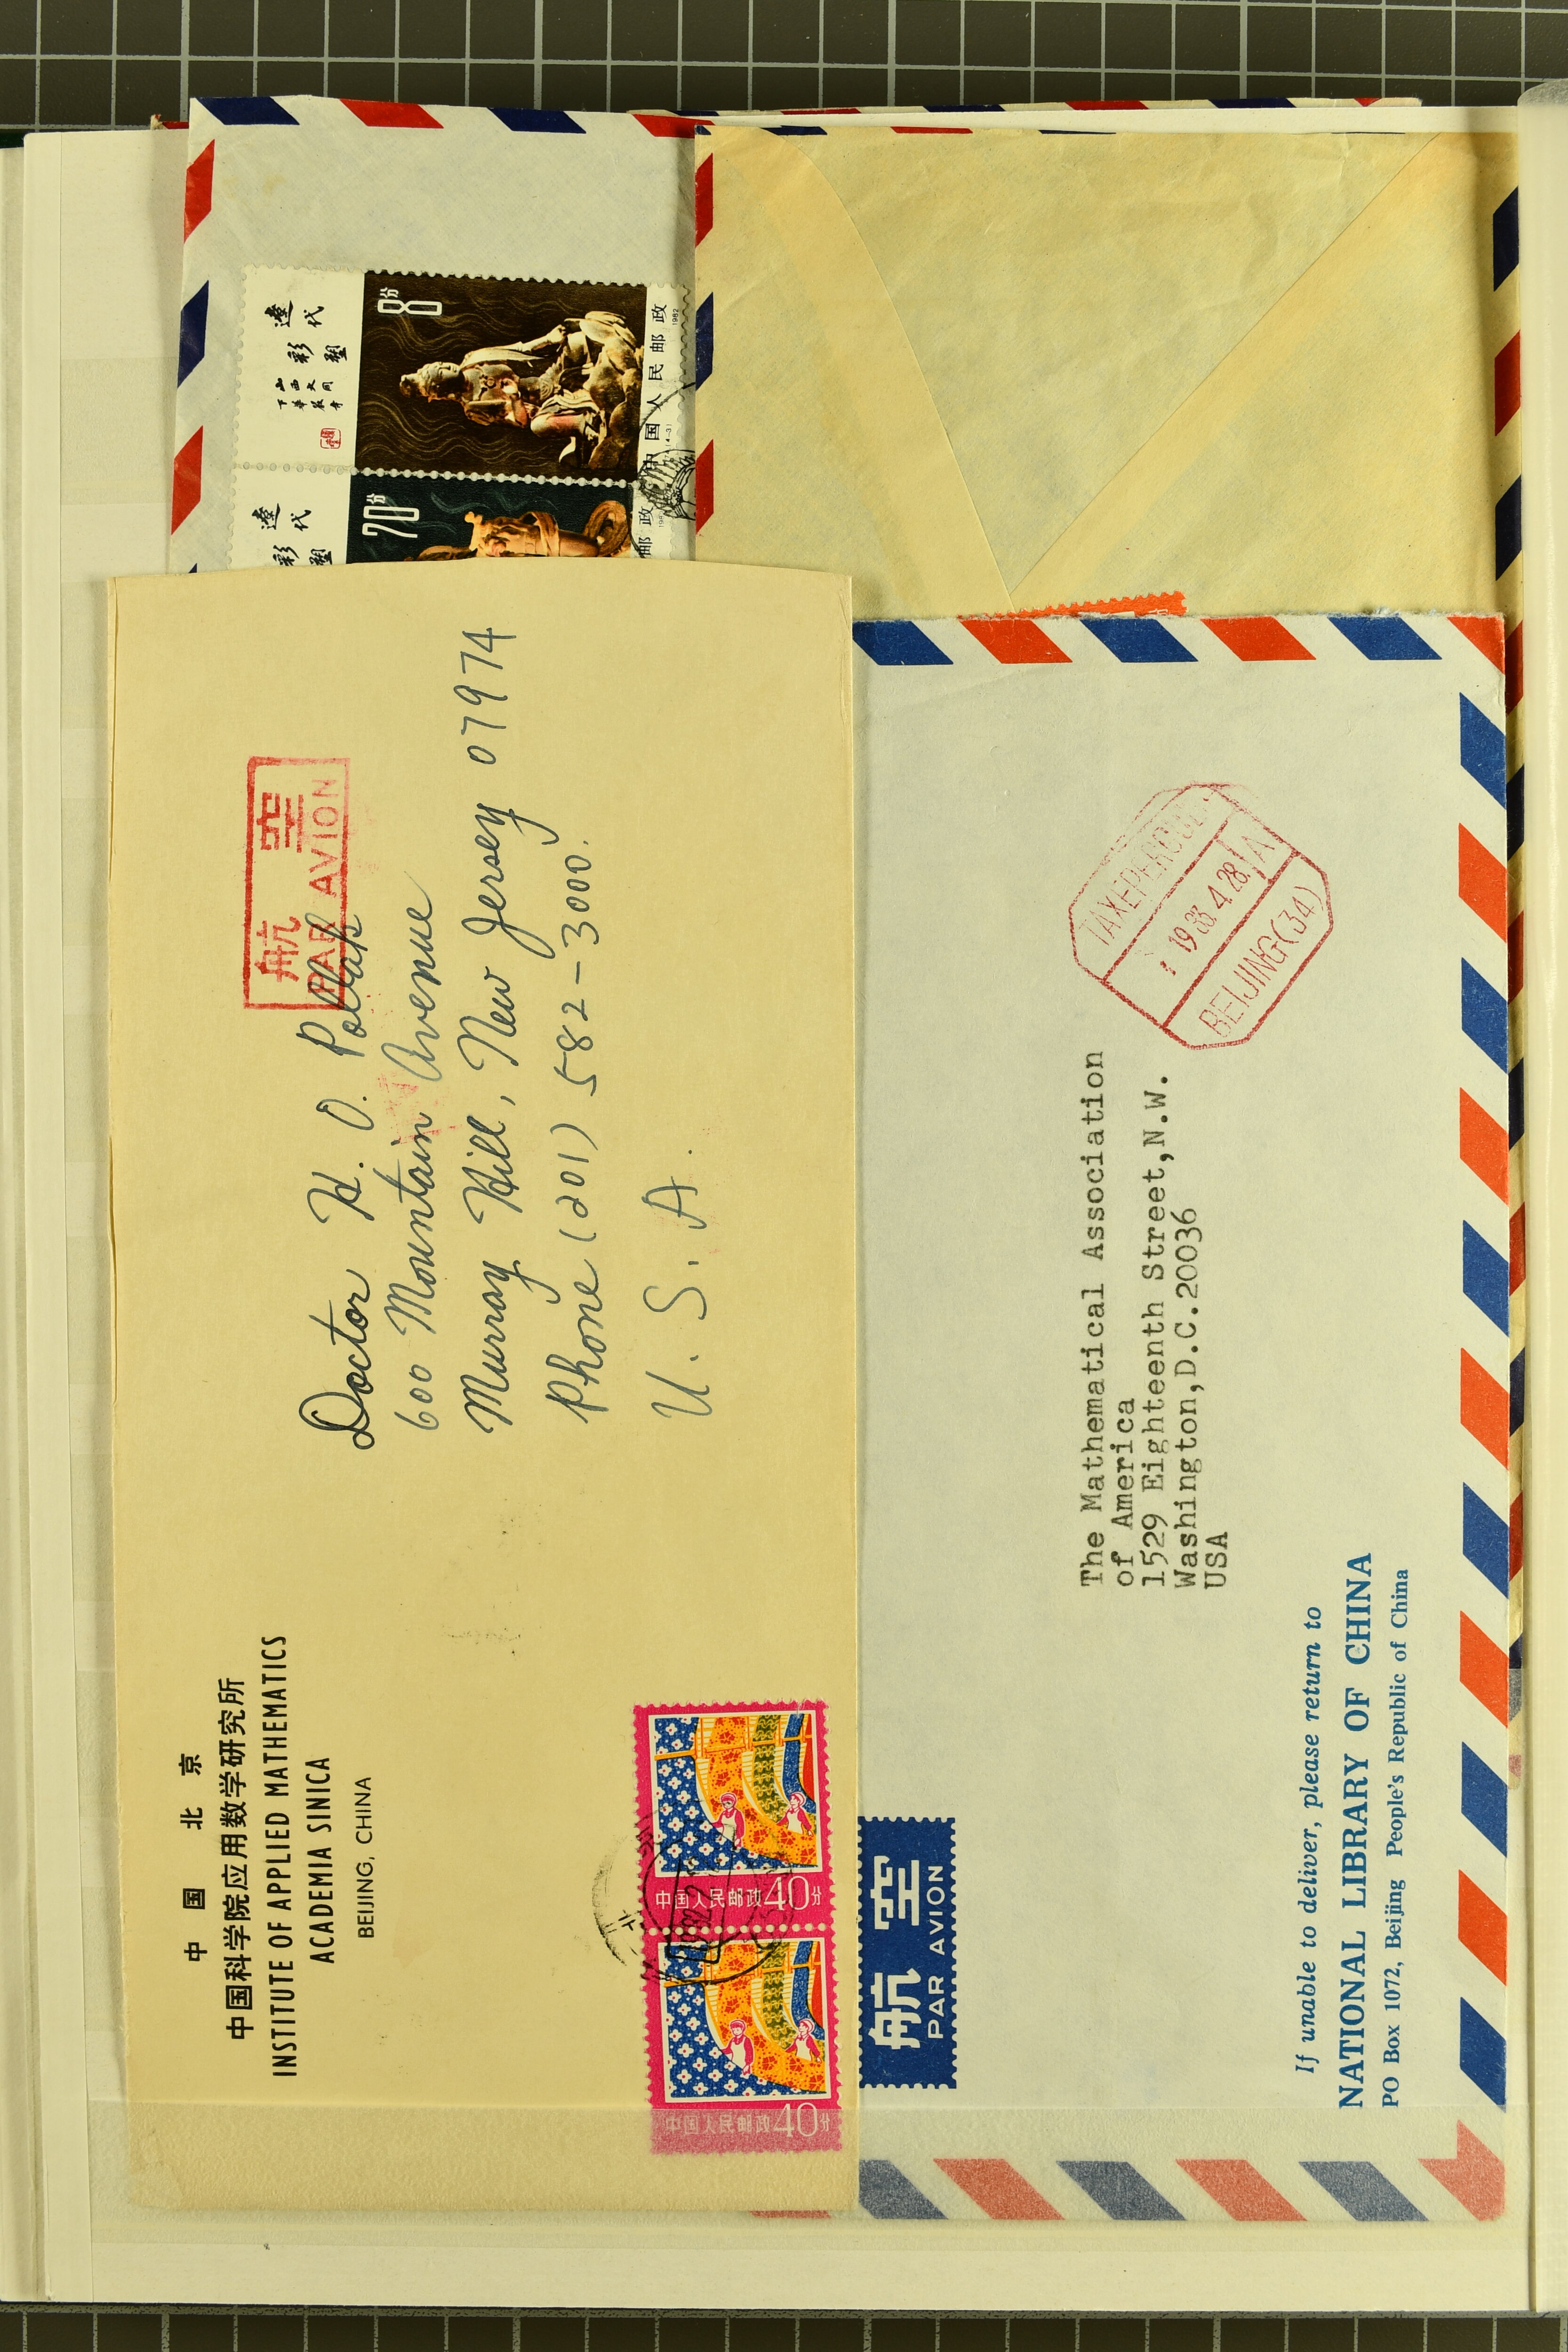 中国北京
中国科学院应用数学研究所
INSTITUTE OF APPLIED MATHEMATICS
ACADEMIA SINICA
BEIJING, CHINA
航空
PAR AVION
Doctor H. O. Pollak
600 Mountain Avenue
Murray Hill, New Jersey 07974
Phone (201) 582-3000.
U. S. A.
中国人民邮政 40分
中国人民邮政 40分
遼代
彩塑
山西大同
下华严寺
8分
中国人民邮政
(4-3) 1982
遼代
彩塑
70分
邮政
航空
PAR AVION
The Mathematical Association
of America
1529 Eighteenth Street,N.W.
Washington,D.C.20036
USA
TAXE PERCUE
1983.4.28
A
BEIJING(34)
If unable to deliver, please return to
NATIONAL LIBRARY OF CHINA
PO Box 1072, Beijing People's Republic of China